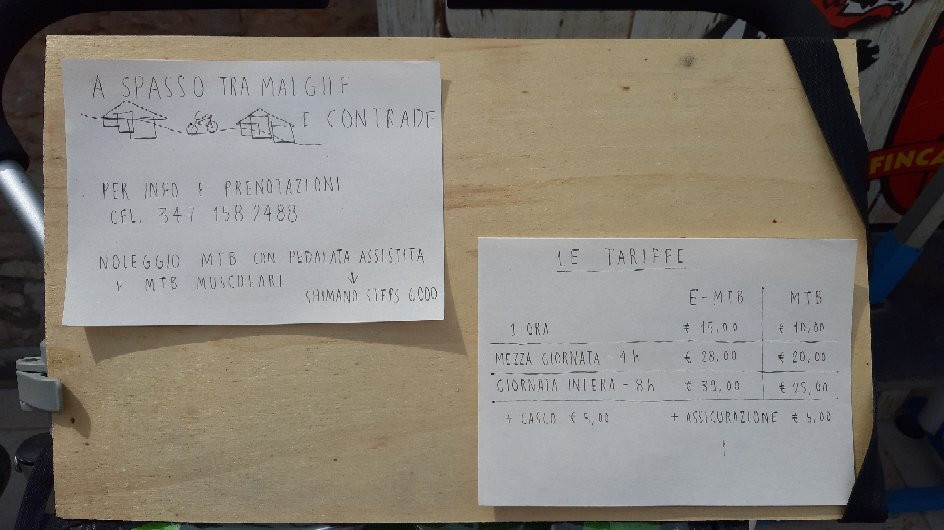 A SPASSO TRA MALGHE
E CONTRADE
PER INFO E PRENOTAZIONI
CELL. 347 158 2488
NOLEGGIO MTB CON PEDALATA ASSISTITA
+ MTB MUSCOLARI
SHIMANO STEPS 6000
LE TARIFFE
E-MTB MTB
1 ORA € 15,00 € 10,00
MEZZA GIORNATA - 4h € 28,00 € 20,00
GIORNATA INTERA - 8h € 39,00 € 25,00
+ CASCO € 5,00 + ASSICURAZIONE € 5,00
FINCA